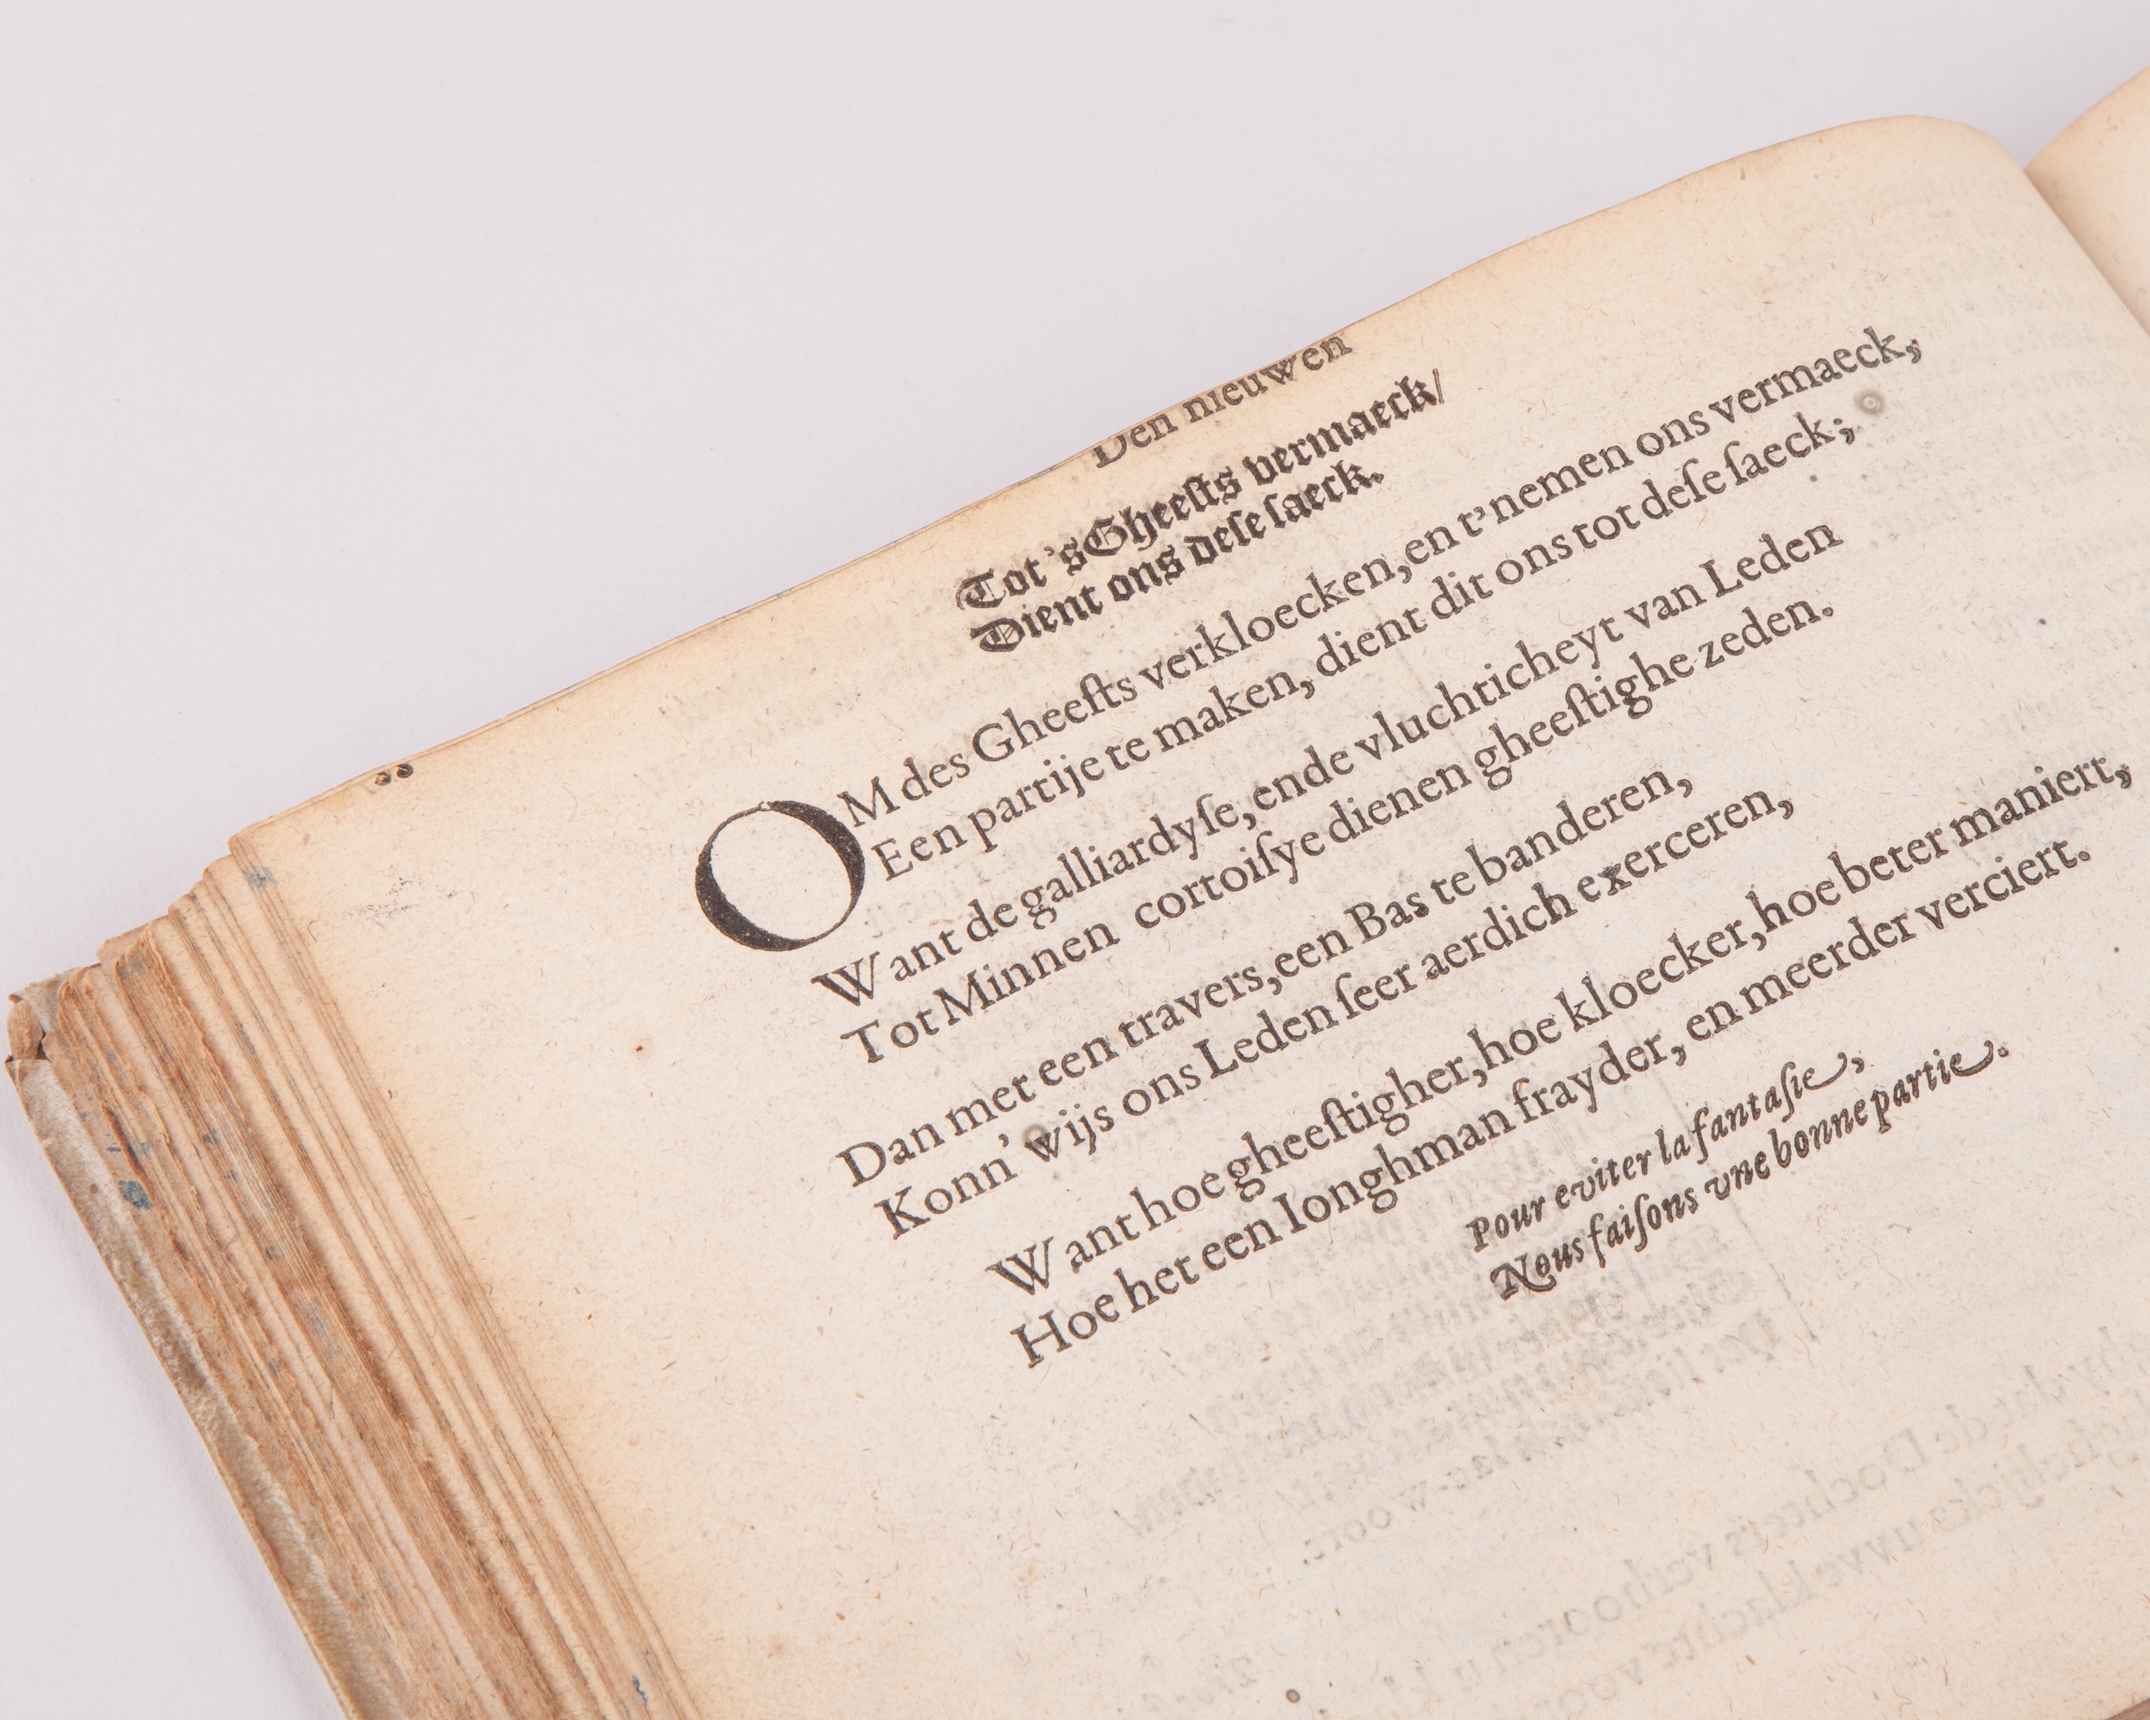 Den nieuwen
Tot 'sGheeſts vermaeck/
Dient ons deſe ſaeck.
OM des Gheeſts verkloecken, en t'nemen ons vermaeck,
Een partije te maken, dient dit ons tot deſe ſaeck;
Want de galliardyſe, ende vluchticheyt van Leden
Tot Minnen cortoiſye dienen gheeſtighe zeden.
Dan met een travers, een Bas te banderen,
Konn' wijs ons Leden ſeer aerdich exerceren,
Want hoe gheeſtigher, hoe kloecker, hoe beter maniert,
Hoe het een Ionghman frayder, en meerder verciert.
Pour eviter la fantaſie,
Nous faiſons vne bonne partie.